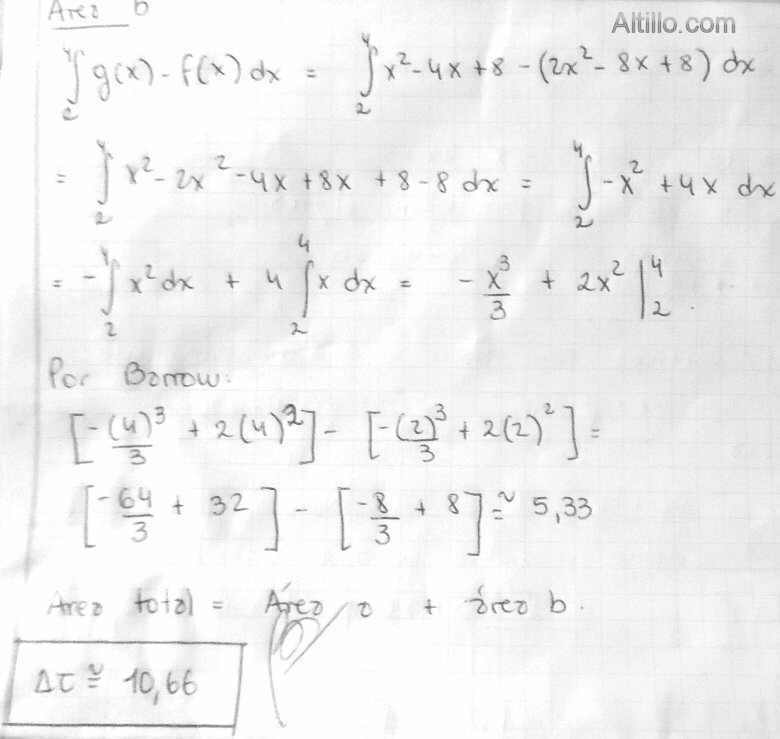 Area b
Altillo.com
∫₂⁴ g(x) - f(x) dx = ∫₂⁴ x² - 4x + 8 - (2x² - 8x + 8) dx
= ∫₂⁴ x² - 2x² - 4x + 8x + 8 - 8 dx = ∫₂⁴ -x² + 4x dx
= - ∫₂⁴ x² dx + 4 ∫₂⁴ x dx = - x³/3 + 2x² |₂⁴ .
Por Barrow:
[-(4)³/3 + 2(4)²] - [-(2)³/3 + 2(2)²] =
[-64/3 + 32] - [-8/3 + 8] ≅ 5,33
Area total = Área a + área b.
Aτ ≅ 10,66